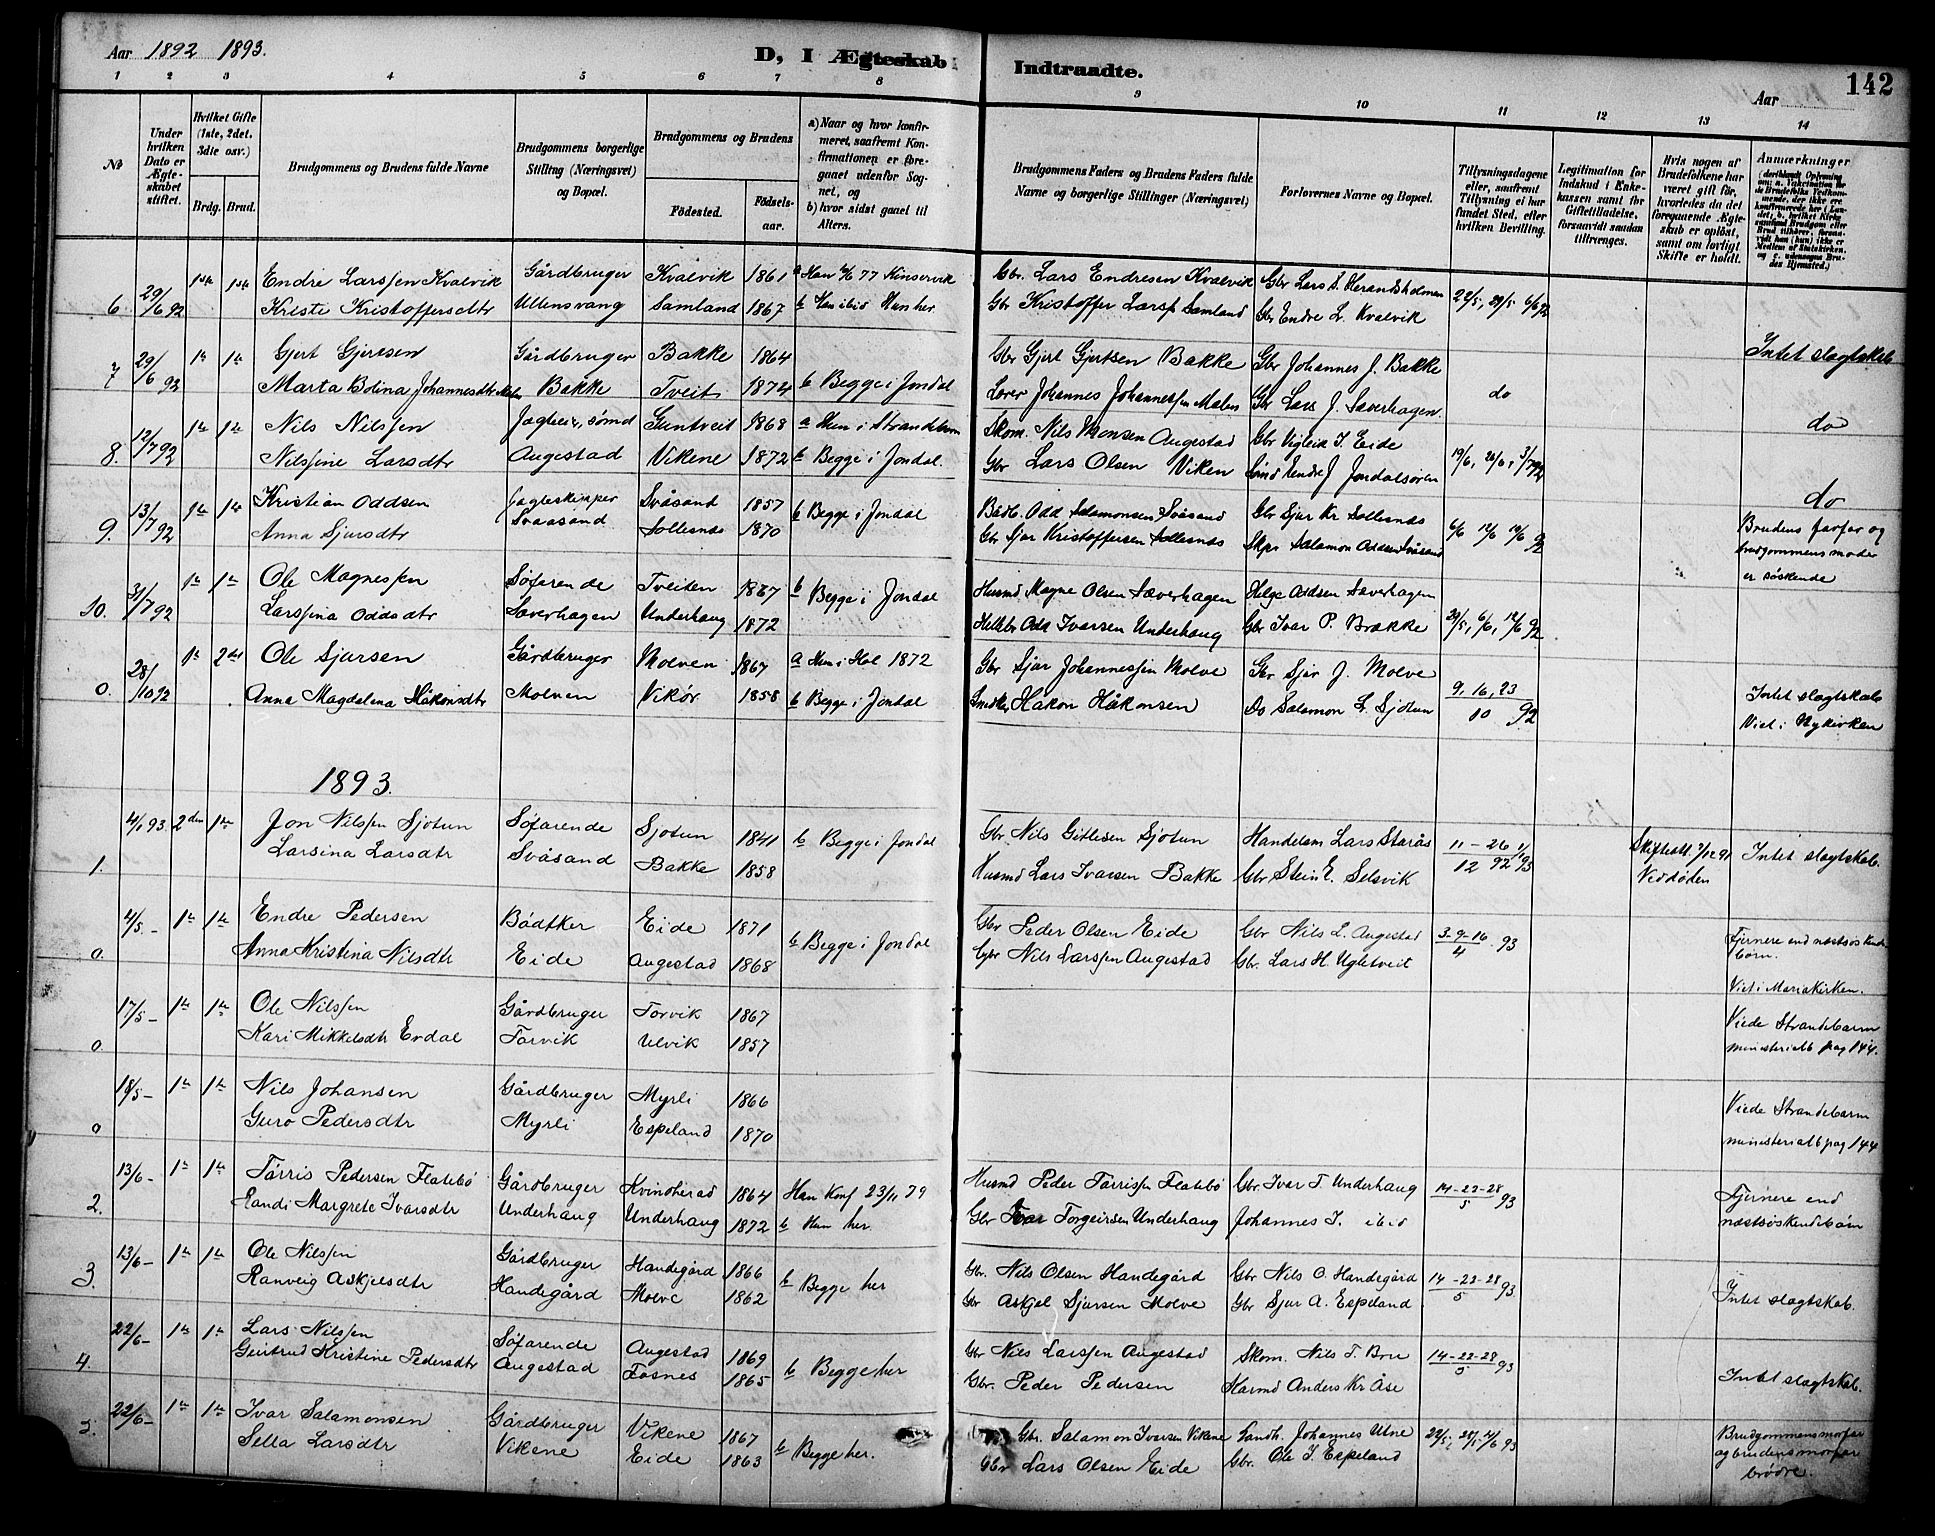 Aar 1892 1893.
D, I Ægteskab Indtraadte.
Aar
142
1 2 3 4 5 6 7 8 9 10 11 12 13 14
No
Under hvilken Dato er Ægteskabet stiftet.
Hvilket Gifte (1ste, 2det. 3die osv.)
Brdg. Brud.
Brudgommens og Brudens fulde Navne
Brudgommens borgerlige Stilling (Næringsvei) og Bopæl.
Brudgommens og Brudens
Fødested.
Fødselsaar.
a) Naar og hvor konfirmeret, saafremt Konfirmationen er foregaaet udenfor Sognet, og
b) hvor sidst gaaet til Alters.
Brudgommens Faders og Brudens Faders fulde Navne og borgerlige Stillinger (Næringsvei)
Forlovernes Navne og Bopæl.
Tillysningsdagene eller, saafremt Tillysning ei har fundet Sted, efter hvilken Bevilling.
Legitimation for Indskud i Enkekassen samt for Giftetilladelse, forsaavidt saadan tiltrænges.
Hvis nogen af Brudefolkene har været gift før, hvorledes da det foregaaende Ægteskab er opløst, samt om lovligt Skifte er holdt.
Anmærkninger
6. 29/6 92 1ste 1ste Endre Larssen Kvalvik Gårdbruger Kvalvik 1861 a Han 77 Kinservik Gbr. Lars Endresen Kvalvik Gbr Lars S. Herandsholmen 22/5, 29/5 6/6 92
Kristi Kristoffersdtr Ullensvang Samland 1867 b Han ibid Hun her Gbr Kristoffer Larss Samland Gbr Endre L. Kvalvik
7 29/6 92 1ste 1ste Gjert Gjertsen Gårdbruger Bakke 1864 Gbr Gjert Gjertsen Bakke Gbr Johannes J. Bakke Intet slagtskab
Marta Bolina Johannesdtr Bakke Tveit 1874 b Begge i Jondal Johannes Johannessen Malen Gbr Lars J. Særerhagen do
8. 12/7 92 1ste 1ste Nils Nilssen Jagteier, sømd Guntveit 1868 a Hun i Strandebarm Skom. Nils Monsen Augestad Gbr Vigleik I. Eide do
Nilssine Larsdtr Augestad Vikene 1872 b Begge i Jondal. Gbr Lars Olsen Viken Endre J Jondalsøren 19/6, 26/6, 3/7 92
9. 13/7 92 1ste 1ste Kristian Oddsen Jagteskipper Svåsand 1857 b Begge i Jondal Bådb. Odd Salamonsen Svåsand Gbr Sjur Kr Sollesnæs 6/6 12/6 19/6 92 do
Anna Sjursdtr Svaasand Sollesnæs 1870 Gbr Sjur Kristoffersen Sollesnæs Skpr Salamon Oddsen Svåsand Brudens farfar og
brudgommens moder
er søskende
10. 31/7 92 1ste 1ste Ole Magnessen Søfarende Tveiten 1867 b Begge i Jondal Husmd Magne Olsen Særerhagen Helge Oddsen Særerhagen
Larssina Oddsdtr Særerhagen Underhaug 1872 Odd Ivarsen Underhaug Gbr Ivar P. Brække 30/5, 6/6, 12/6 92
0. 28/10 92 1ste 2det Ole Sjursen Gårdbruger Molven 1867 a Hun i Hol 1872 Gbr Sjur Johannessen Molve Gbr Sjur J. Molve
Anna Magdalena Håkonsdtr Molven Vikør 1858 b Begge i Jondal Håkon Håkonsen Do Salamon L. Sjotun 9, 16, 23/10 92 Intet slagtskab
Viet i Nykirken
1893.
1. 4/1 93 2den 1ste Jon Nilssen Sjotun Søfarende Sjotun 1841 b Begge i Jondal Gbr Nils Gitlesen Sjotun Handelsm Lars Starås 11-26/12 92 1/1 93 Skifteatt. 7/12 91 Intet slagtskab.
Larsina Larsdtr Svåsand Bakke 1858 Husmd Lars Ivarsen Bakke Gbr Stein E. Selsvik Veddøden
0. 4/5.- 1ste 1ste Endre Pedersen Bådtker Eide 1871 b Begge i Jondal Gbr Peder Olsen Eide Gbr Nils L. Augestad 3-9-16/4 93 Fjernere end næstsøskende
Anna Kristina Nilsdtr Eide Augestad 1868 Gbr Nils Larssen Augestad Gbr. Lars H. Ugletveit børn.
Viet i Mariakirken.
0. 17/5- 1ste 1ste Ole Nilssen Gårdbruger Torvik 1867 Viede Strandebarm
Kari Mikkelsdtr Erdal Torvik Ulvik 1857 ministerialb pag 144.
0 18/5- 1ste 1ste Nils Johansen Gårdbruger Myrli 1866 Viede Strandebarm
Guro Pedersdtr Myrli Espeland 1870 ministerialb pag 144
2. 13/6- 1ste 1ste Tørris Pedersen Flatebø Gårdbruger Kvindherad 1864 Han Konf 23/11 79 Husmd Peder Tørrissen Flatebø Gbr. Ivar T Underhaug 14-22-28/5 93 Fjernere end
Randi Margrete Ivarsdtr Underhaug Underhaug 1872 b Hun her. Gbr Ivar Torgeirsen Underhaug Johannes I. ibid næstsøskendebørn
3. 13/6- 1ste 1ste Ole Nilssen Gårdbruger Handegård 1866 b Begge her Gbr. Nils Olsen Handegård Gbr Nils O. Handegård 14-22-28/5 93
Ranveig Askjelsdtr Handegård Molve 1862 Gbr Askjel Sjursen Molve Gbr Sjur A. Espeland Intet slagtskab.
4. 22/6- 1ste 1ste Lars Nilssen Søfarende Augestad 1869 b Begge her Gbr Nils Larssen Augestad Skom. Nils T. Bru 14-22-28/5 93
Gertrud Kristine Pedersdtr Augestad Fosnes 1865 Gbr. Peder Pedersen Anders Kr Åse Intet slagtskab.
5. 22/6- 1ste 1ste Ivar Salamonsen Gårdbruger Vikene 1867 b Begge her. Gbr. Salamon Ivarsen Vikene Landh. Johannes Utne 22/5, 28/5 4/6 93 Brudgommens morfar
Sella Larsdtr Vikene Eide 1863 Gbr Lars Olsen Eide Gbr. Ole I. Espeland og brudens morfar
brødre.